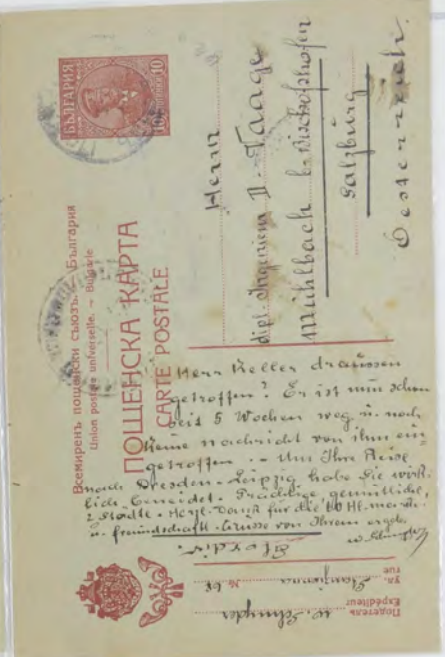 Всемиренъ пощенски съюзъ. България
Union postale universelle. — Bulgarie
ПОЩЕНСКА КАРТА
CARTE POSTALE
БЪЛГАРИЯ
10 10
Herrn
dipl. Ingenieur II. Taage
Mühlbach b. Bischofshofen
Salzburg
Oesterreich.
Herr Keller draussen
getroffen? Er ist nun schon
seit 5 Wochen weg u. noch
keine Nachricht von ihm ein-
getroffen. - Um Ihre Reise
nach Dresden - Leipzig habe Sie wirk-
lich beneidet. Prächtige gemütliche
2 Städte. Herzl. Dank für die
u. freundschaftl. Grüsse von Ihrem ergeb.
Подателъ
Expéditeur
W. Schnyder
ул.
rue
№ 68